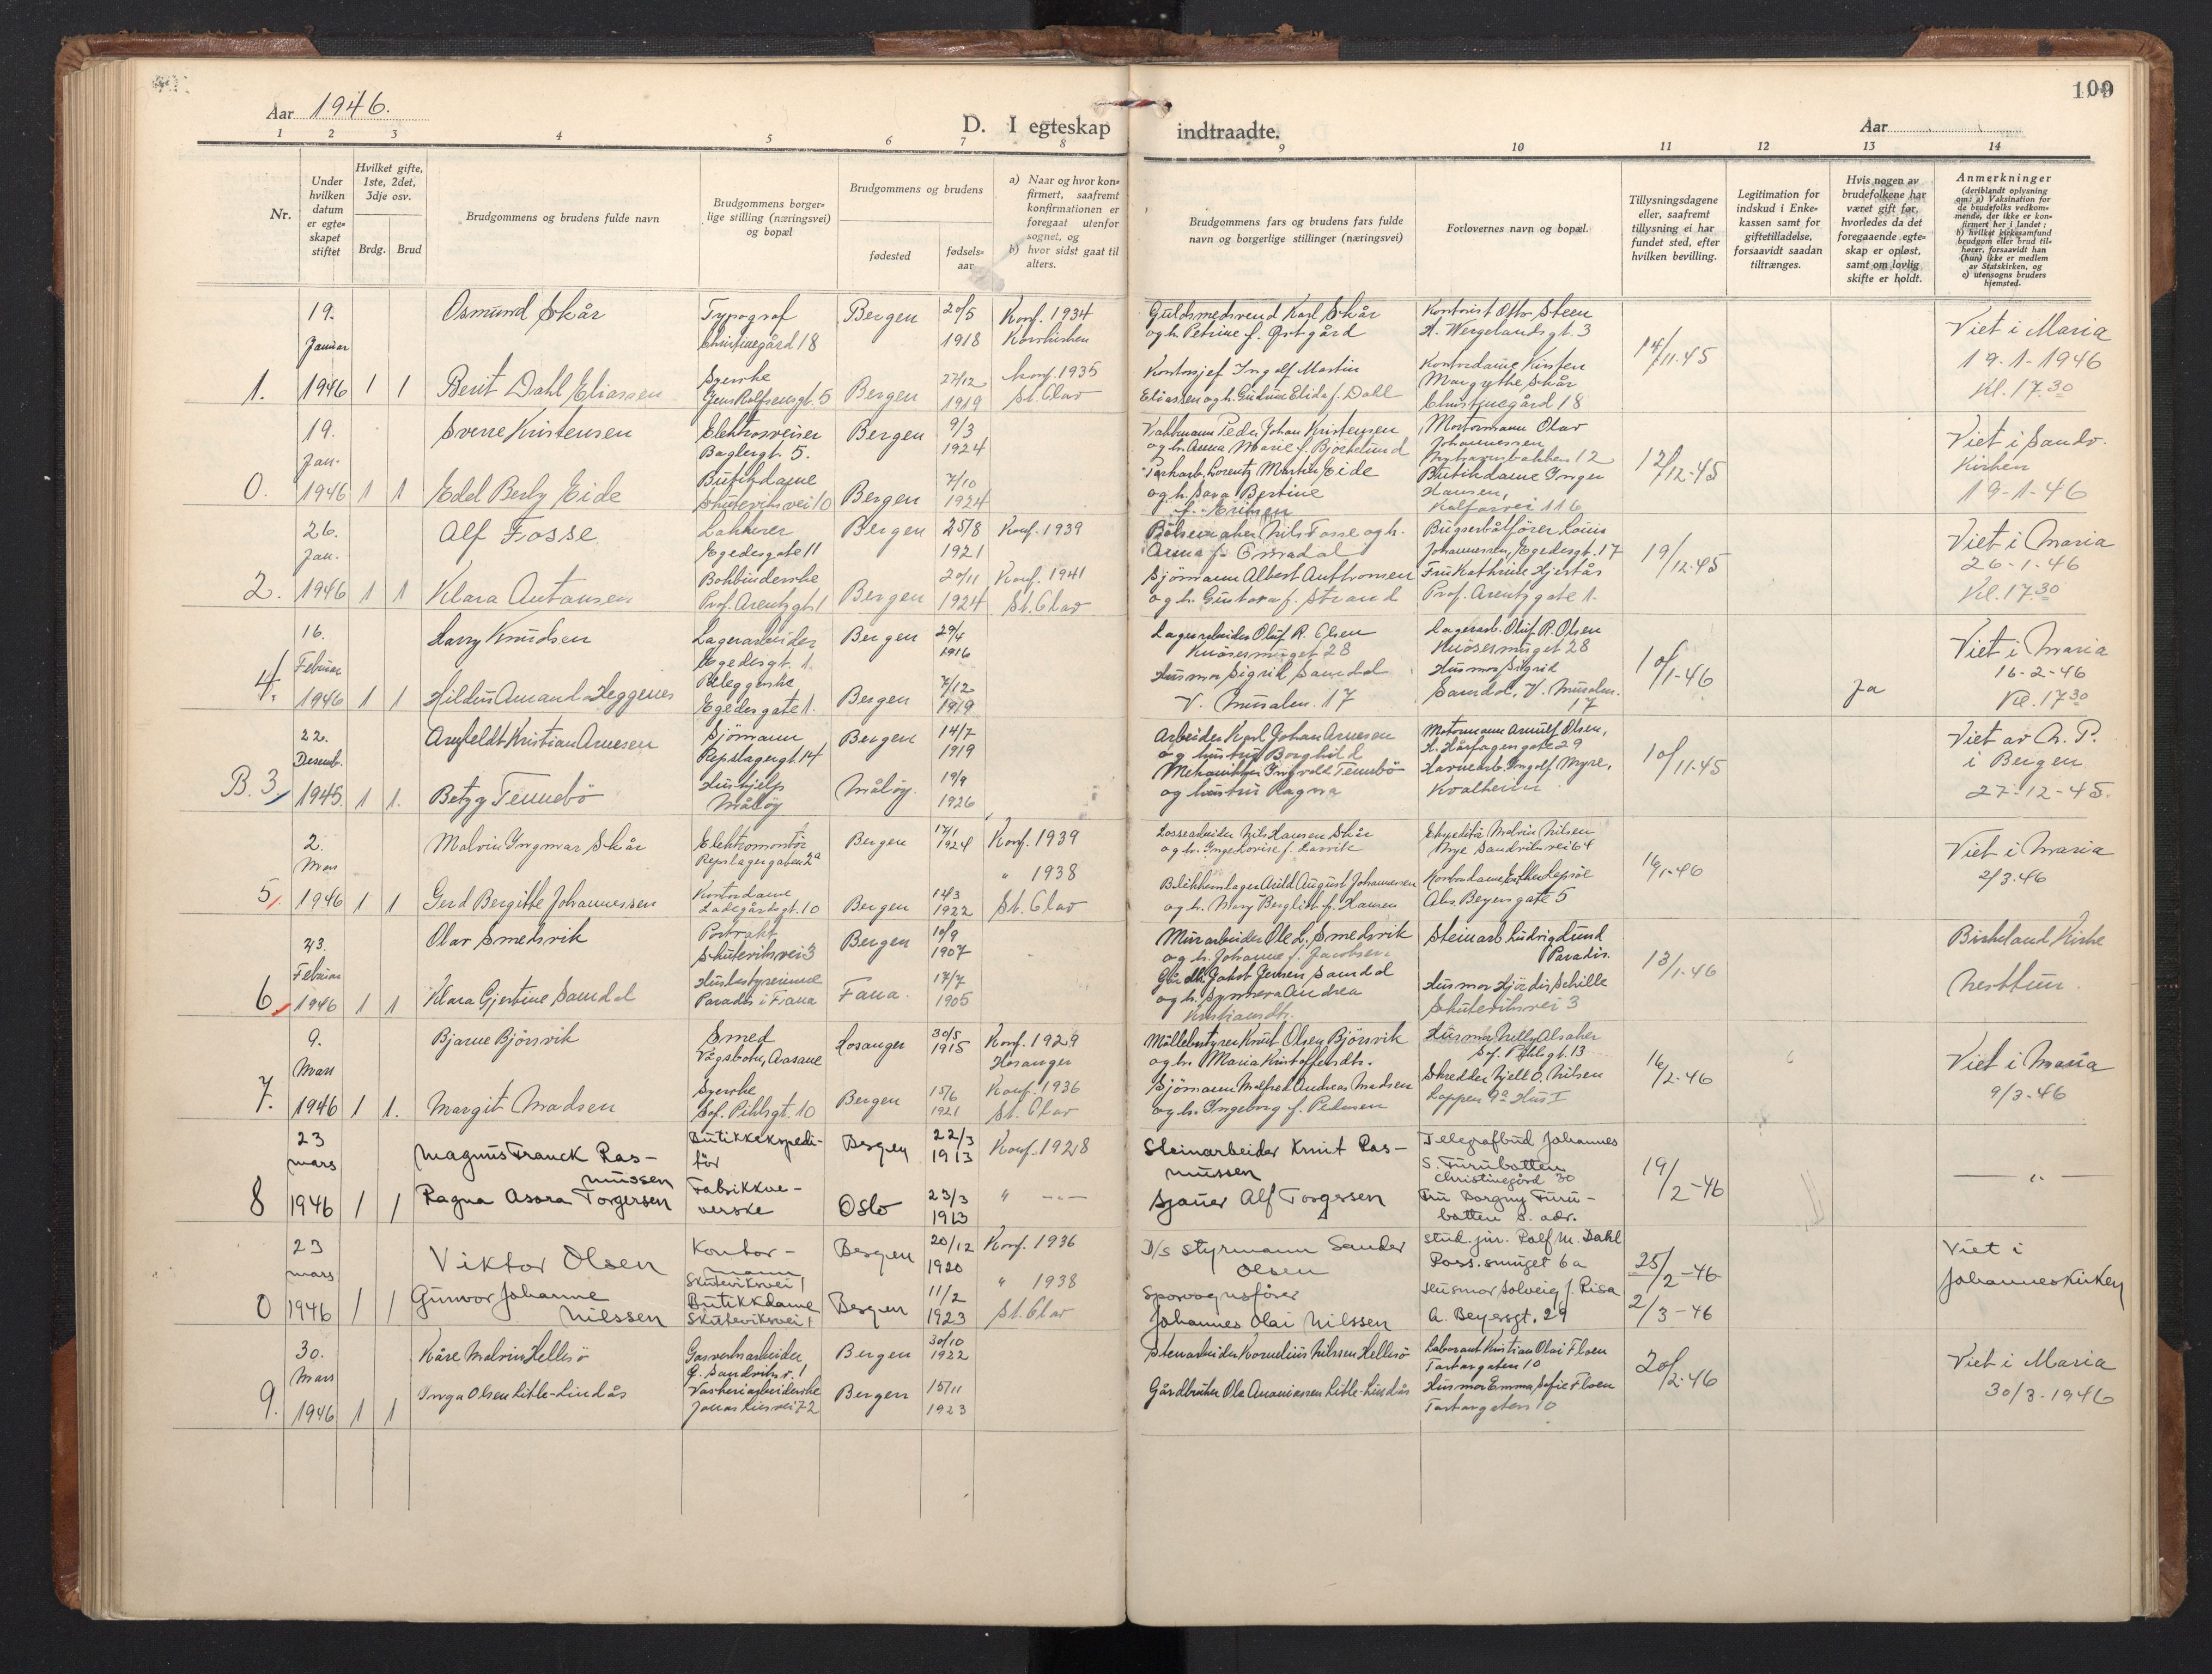 Aar 1946.
D. I egteskap indtraadte.
Aar
109
1 2 3 4 5 6 7 8 9 10 11 12 13 14
Nr.
Under hvilken datum er egteskapet stiftet
Hvilket gifte, 1ste, 2det, 3dje osv.
Brdg. Brud
Brudgommens og brudens fulde navn
Brudgommens borgerlige stilling (næringsvei) og bopæl
Brudgommens og brudens
fødested
fødselsaar
a) Naar og hvor konfirmert, saafremt konfirmationen er foregaat utenfor sognet, og
b) hvor sidst gaat til alters.
Brudgommens fars og brudens fars fulde navn og borgerlige stillinger (næringsvei)
Forlovernes navn og bopæl.
Tillysningsdagene eller, saafremt tillysning ei har fundet sted, efter hvilken bevilling.
Legitimation for indskud i Enkekassen samt for giftetilladelse, forsaavidt saadan tiltrænges.
Hvis nogen av brudefolkene har været gift før, hvorledes da det foregaaende egteskap er opløst, samt om lovlig skifte er holdt.
Anmerkninger
(deriblandt oplysning om: a) Vaksination for de brudefolks vedkommende, der ikke er konfirmert her i landet; b) hvilket kirkesamfund brudgom eller brud tilhører, forsaavidt han (hun) ikke er medlem av Statskirken, og c) utensogns bruders hjemsted.
19. Januar 1946
1. 1 1
Osmund Skår
Typograf
Christinegård 18
Bergen 20/5 1918
Konf. 1934
Korskirken
Guldsmedsvend Karl Skår
og h. Petrine f. Østgård
Kontorist Otto Steen
H. Wergelandsgt. 3
14/11-45
Viet i Maria
19-1-1946
Kl. 17.30
Berit Dahl Eliassen
Syerske
Jens Rolfsensgt. 5
Bergen 27/12 1919
konf. 1935
St. Olav
Kontorsjef Ingolf Martin
Eliassen og h. Gudrun Elida f. Dahl
Kontordame Kirsten
Margrethe Skår
Christinegård 18
19. Jan. 1946
0. 1 1
Sverre Kristensen
Elektrosveiser
Baglergt. 5.
Bergen 9/3 1924
Peder Johan Kristensen
og h. Anna Marie f. Bjørkelund
Motormann Olav
Johannessen
12
12/12-45
Viet i Sandv.
Kirken
19-1-46
Edel Berly Eide
Butikkdame
Skuteviksvei 10
Bergen 7/10 1924
Lorentz Martin Eide
og h. Sara Bertine
f. Eriksen
Butikkdame Inger
Hansen,
Kalfarvei 116
26. Jan. 1946
2. 1 1
Alf Fosse
Lakkerer
Egedesgate 11
Bergen 25/8 1921
Konf. 1939
Nils Fosse og h.
Anna f.
Bugserbåtfører Louis
Johannessen, Egedesgt. 17
19/12-45
Viet i Maria
26-1-46
Kl. 17.30
Klara Antonsen
Bokbinderske
Prof. Arentzgt. 1
Bergen 20/11 1924
Konf. 1941
St. Olav
Sjömann Albert Anthonsen
og h. Gustava f. Strand
Fru Kathrine Hjertås
Prof. Arentzgate 1.
16. Februar 1946
4. 1 1
Harry Knudsen
Lagerarbeider
Egedesgt. 1.
Bergen 29/4 1916
Lagerarbeider Oluf R. Olsen
Knösesmuget 28
Lagerarb. Oluf R. Olsen
Knösesmuget 28
10/1-46
Ja
Viet i Maria
16-2-46
Kl. 17.30
Hildur Amanda Heggenes
Egedesgate 1.
Bergen 7/12 1919
Husmor Sigrid Samdal
V. Muralm. 17
Husmor Sigrid
Samdal, V. Muralm. 17
22. Desemb. 1945
B. 3. 1 1.
Arnfeldt Kristian Arnesen
Sjömann
Repslagergt. 14
Bergen 14/7 1919
Arbeider Karl Johan Arnesen
og hustru Borghild
Motormann Arnulf Olsen,
H. Hårfagersgate 29
10/11-45
Viet av h. P.
i Bergen
27-12-45.
Betzy Tennebö
Hushjelp
Måløy
Måløy. 19/9 1926
Mekaniker Ingvald Tennebö
og hustru Ragna
Havnearb. Ingolf Myre,
Kvalheim
2. Mars 1946
5. 1 1
Malvin Ingmar Skår
Elektromontör
Repslagergaten 2a
Bergen 17/1 1924
Konf. 1939
Lossearbeider Nils Hansen Skår
og h. Inga Lovise f. Larvik
Ekspeditör Malvin Nilsen
Nye Sandviksvei 64
16/1-46
Viet i Maria
2/3-46
Gerd Bergithe Johannessen
Kontordame
Ladegårdsgt. 10
Bergen 12/3 1922
" 1938
St. Olav
Blikkenslager Arild August Johannessen
og h. Mary Bergliot f. Hansen
Kontordame Esther Lepsöe
Abs. Beyersgate 5
23. Februar 1946
6. 1 1
Olav Smedsvik
Skuteviksvei 3
Bergen 10/9 1907
Murarbeider Ole L. Smedsvik
og h. Johanne f. Jacobsen
Steinarb. Ludvig Lund
Paradis.
13/1-46
Birkeland Kirke
Nesttun.
Klara Gjertine Samdal
Husbestyrerinne
Paradis i Fana
Fana. 17/7 1905
Jakob Jensen Samdal
og h. Synneva Andrea
Kristiansdtr.
Husmor Hjördis Schille
Skuteviksvei 3
9. Mars 1946
7. 1 1.
Bjarne Björsvik
Smed
Vågsbotn, Aasane
Hosanger 30/5 1915
Konf. 1929
Hosanger
Möllebestyrer Knut Olsen Björsvik
og h. Maria Kristoffersdtr.
Husmor Nelly Alsaker
Sof. Pihlsgt. 13
16/2-46
Viet i Maria
9/3-46
Margit Madsen
Syerske
Sof. Pihlsgt. 10
Bergen 15/6 1921
Konf. 1936
St. Olav
Sjömann Malfred Andreas Madsen
og h. Ingeborg f. Pedersen
Skredder Kjell O. Nilsen
Loppen 9a Hus I
23 mars 1946
8 1 1
Magnus Franck Rasmussen
Butikkekspeditör
Bergen 22/3 1913
Konf. 1928
Steinarbeider Knut Rasmussen
Telegrafbud Johannes
S. Furubotten
Christinegård 30
19/2-46
— " —
Ragna Asora Torgersen
Fabrikkveverske
Oslo 23/3 1913
" —"—
Sjauer Alf Torgersen
Fru Borgny Furubotten s. adr.
23 mars 1946
0 1 1
Viktor Olsen
Kontormann
Skuteviksvei 1
Bergen 20/12 1920
Konf. 1936
D/s Styrmann Sander
Olsen
stud. jur. Rolf M. Dahl
Ross. smuget 6a
25/2-46
Viet i
Johanneskirken
Gunvor Johanne
Nilssen
Butikkdame
Skuteviksvei 1
Bergen 11/2 1923
" 1938
St. Olav
Sporvognsfører
Johannes Olai Nilssen
Husmor Solveig f. Risa
A. Beyersgt. 29
2/3-46
30. Mars 1946
9. 1 1
Kåre Malvin Hellesö
Gasverksarbeider
G. Sandviksv. 1
Bergen 30/10 1922
Stenarbeider Kornelius Nilssen Hellesö
Laborant Kristian Olai Floen
Tartargaten 10
20/2-46
Viet i Maria
30/3-1946
Inga Olsen Litle-Lindås
Vaskeriarbeiderske
Jonas Liesvei 72
Bergen 15/11 1923
Gårdbruker Ole Ananiassen Litle-Lindås
Husmor Emma Sofie Floen
Tartargaten 10